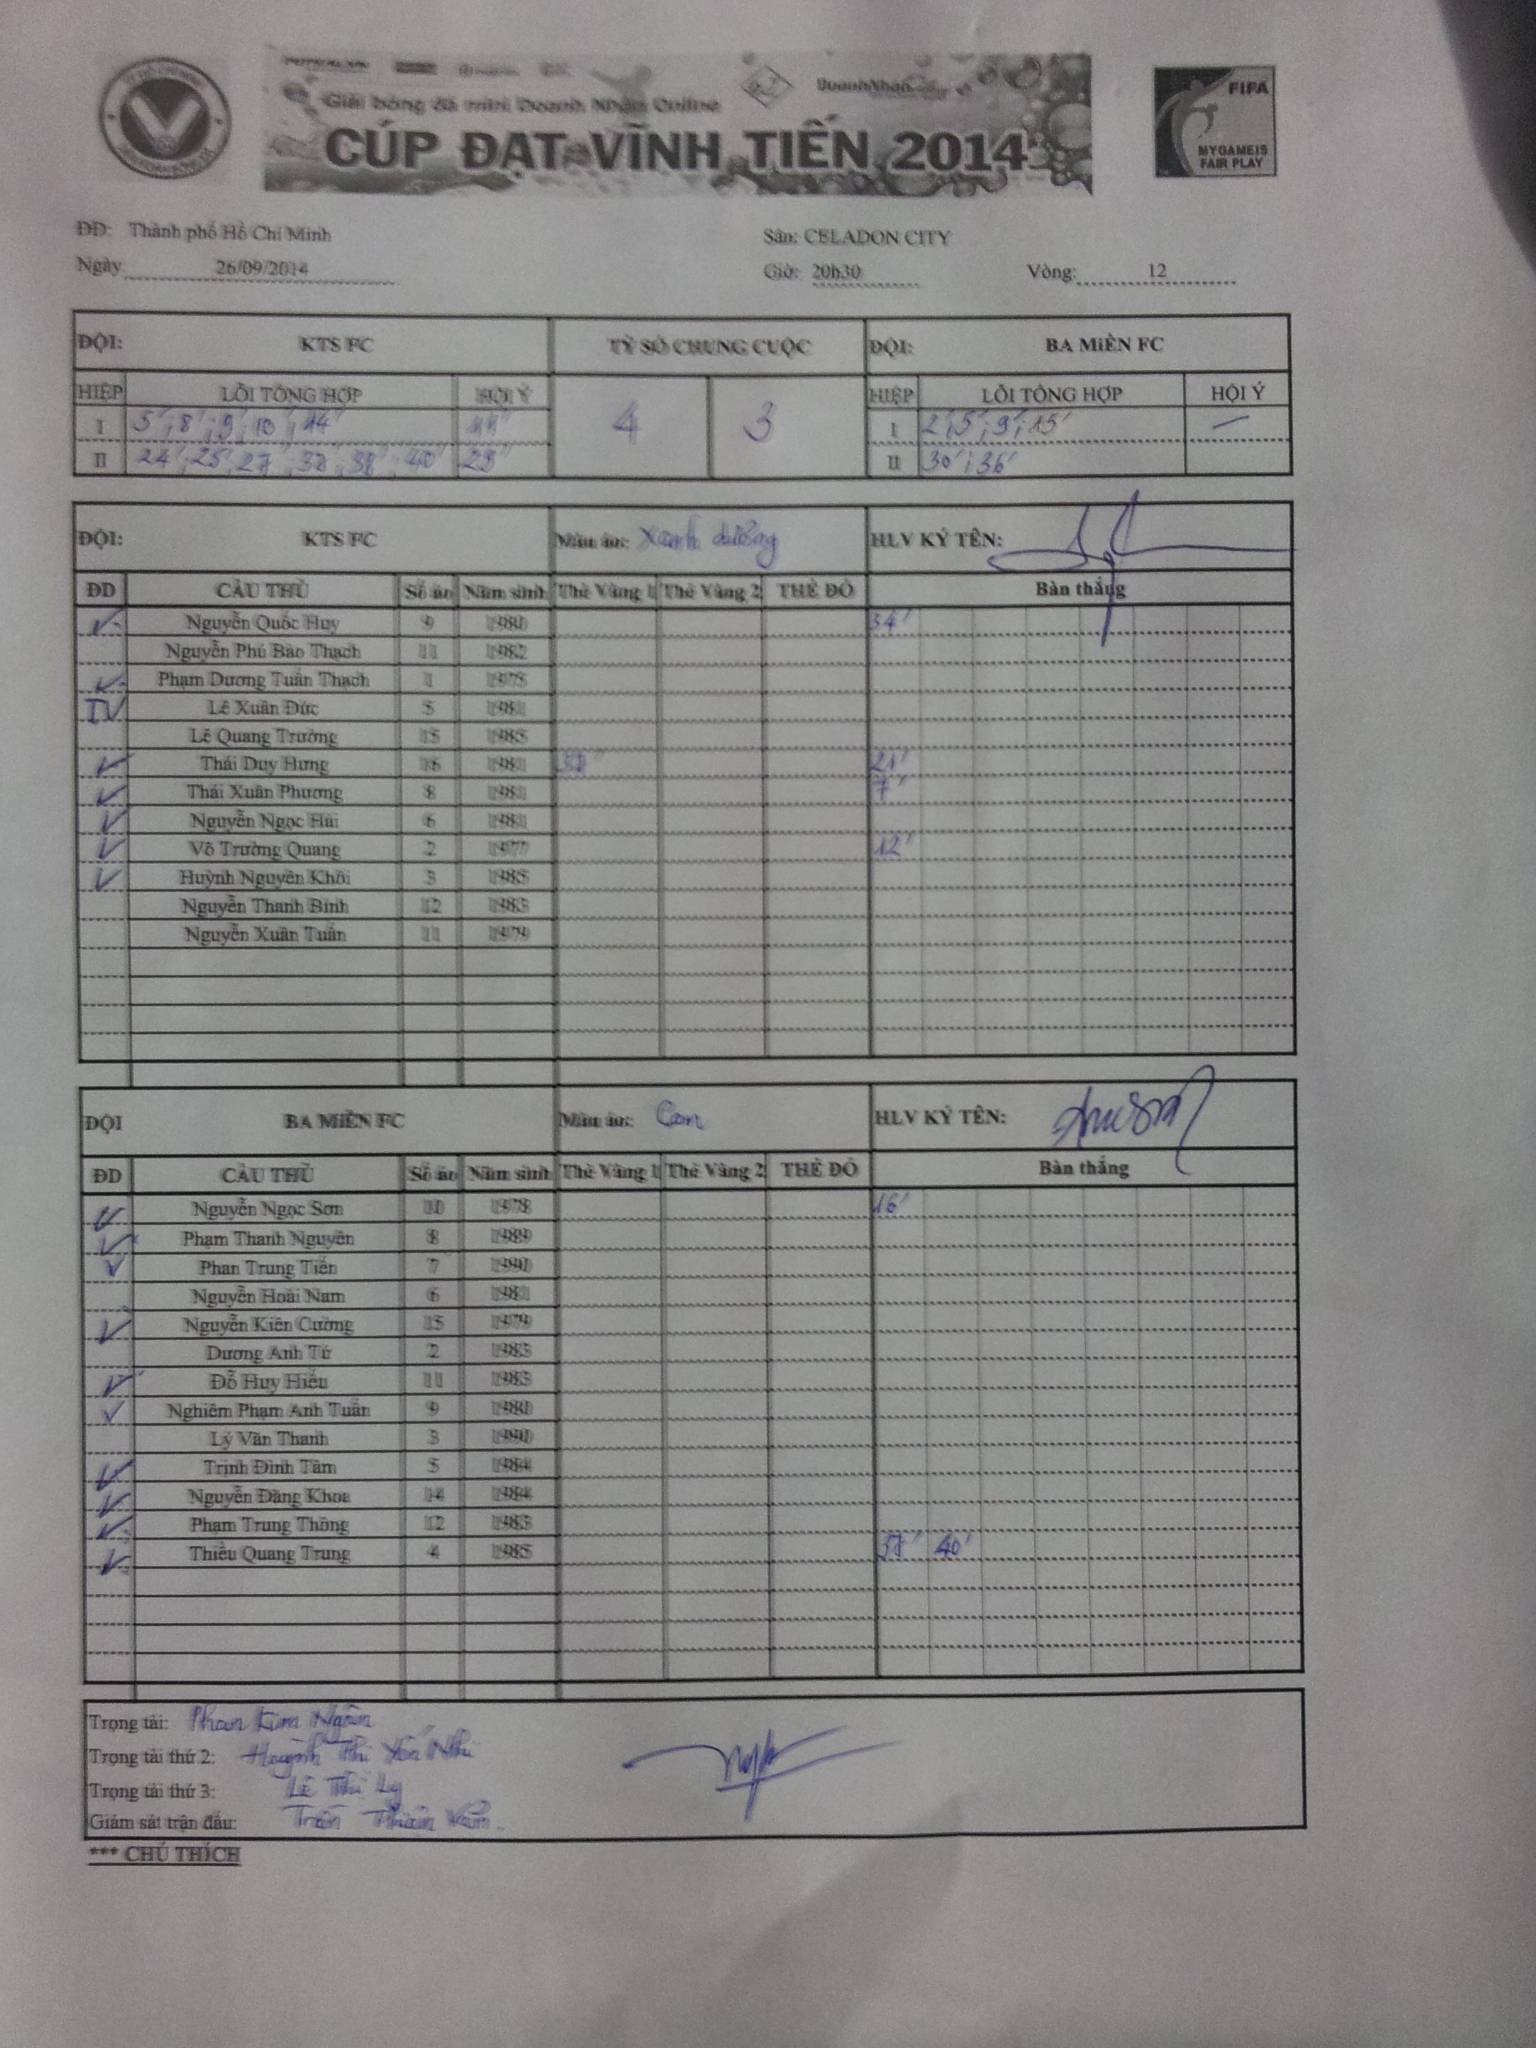 Giải bóng đá mini Doanh Nhân Online
CÚP ĐẠT VĨNH TIẾN 2014
FIFA
MY GAME IS
FAIR PLAY
ĐĐ: Thành phố Hồ Chí Minh Sân: CELADON CITY
Ngày: 26/09/2014 Giờ: 20h30 Vòng: 12
ĐỘI: KTS FC TỶ SỐ CHUNG CUỘC ĐỘI: BA MIỀN FC
HIỆP LỖI TỔNG HỢP HỘI Ý 4 3 HIỆP LỖI TỔNG HỢP HỘI Ý
I 5' ; 8' ; 9' ; 10' ; 14' 11' I 2' ; 5' ; 9' ; 15' —
II 24' ; 25' ; 27' ; 38' ; 40' 29' II 30' ; 36'
ĐỘI: KTS FC Màu áo: Xanh dương HLV KÝ TÊN:
ĐD CẦU THỦ Số áo Năm sinh Thẻ Vàng 1 Thẻ Vàng 2 THẺ ĐỎ Bàn thắng
Nguyễn Quốc Huy 9 1980 34'
Nguyễn Phú Bảo Thạch 11 1982
Phạm Dương Tuấn Thạch 1 1975
Lê Xuân Đức 5 1981
Lê Quang Trường 15 1985
Thái Duy Hưng 16 1981 21'
Thái Xuân Phương 8 1981 7'
Nguyễn Ngọc Hải 6 1981
Võ Trường Quang 2 1977 12'
Huỳnh Nguyên Khôi 3 1985
Nguyễn Thanh Bình 12 1983
Nguyễn Xuân Tuấn 11 1979
ĐỘI BA MIỀN FC Màu áo: Cam HLV KÝ TÊN:
ĐD CẦU THỦ Số áo Năm sinh Thẻ Vàng 1 Thẻ Vàng 2 THẺ ĐỎ Bàn thắng
Nguyễn Ngọc Sơn 10 1978 16'
Phạm Thanh Nguyên 8 1989
Phan Trung Tiến 7 1990
Nguyễn Hoài Nam 6 1981
Nguyễn Kiên Cường 15 1979
Dương Anh Tú 2 1983
Đỗ Huy Hiếu 11 1983
Nghiêm Phạm Anh Tuấn 9 1980
Lý Văn Thanh 3 1990
Trịnh Đình Tâm 5 1984
Nguyễn Đăng Khoa 14 1984
Phạm Trung Thông 12 1983
Thiều Quang Trung 4 1985 40'
Trọng tài: Phan Kim Ngân
Trọng tài thứ 2: Huỳnh Thị Yến Nhi
Trọng tài thứ 3: Lê Thị Ly
Giám sát trận đấu: Trần
*** CHÚ THÍCH